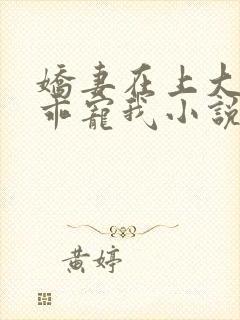 嬌妻在上大
乖寵我小說
黃婷